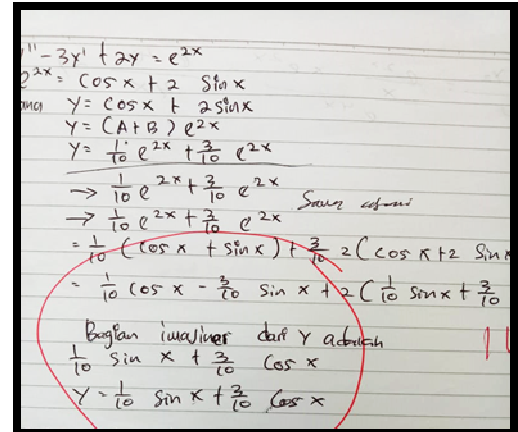 '' - 3y' + 2y = e^2x
e^2x = Cos x + 2 Sin x
y = Cos x + 2 sin x
y = (A+B) e^2x
y = 1/10 e^2x + 3/10 e^2x
→ 1/10 e^2x + 3/10 e^2x
→ 1/10 e^2x + 3/10 e^2x
= 1/10 (Cos x + sin x) + 3/10 2(Cos x + 2 Sin x
= 1/10 Cos x - 3/10 Sin x + 2(1/10 Sin x + 3/10
Bagian imajiner dari Y adalah
1/10 Sin x + 3/10 Cos x
Y = 1/10 Sin x + 3/10 Cos x